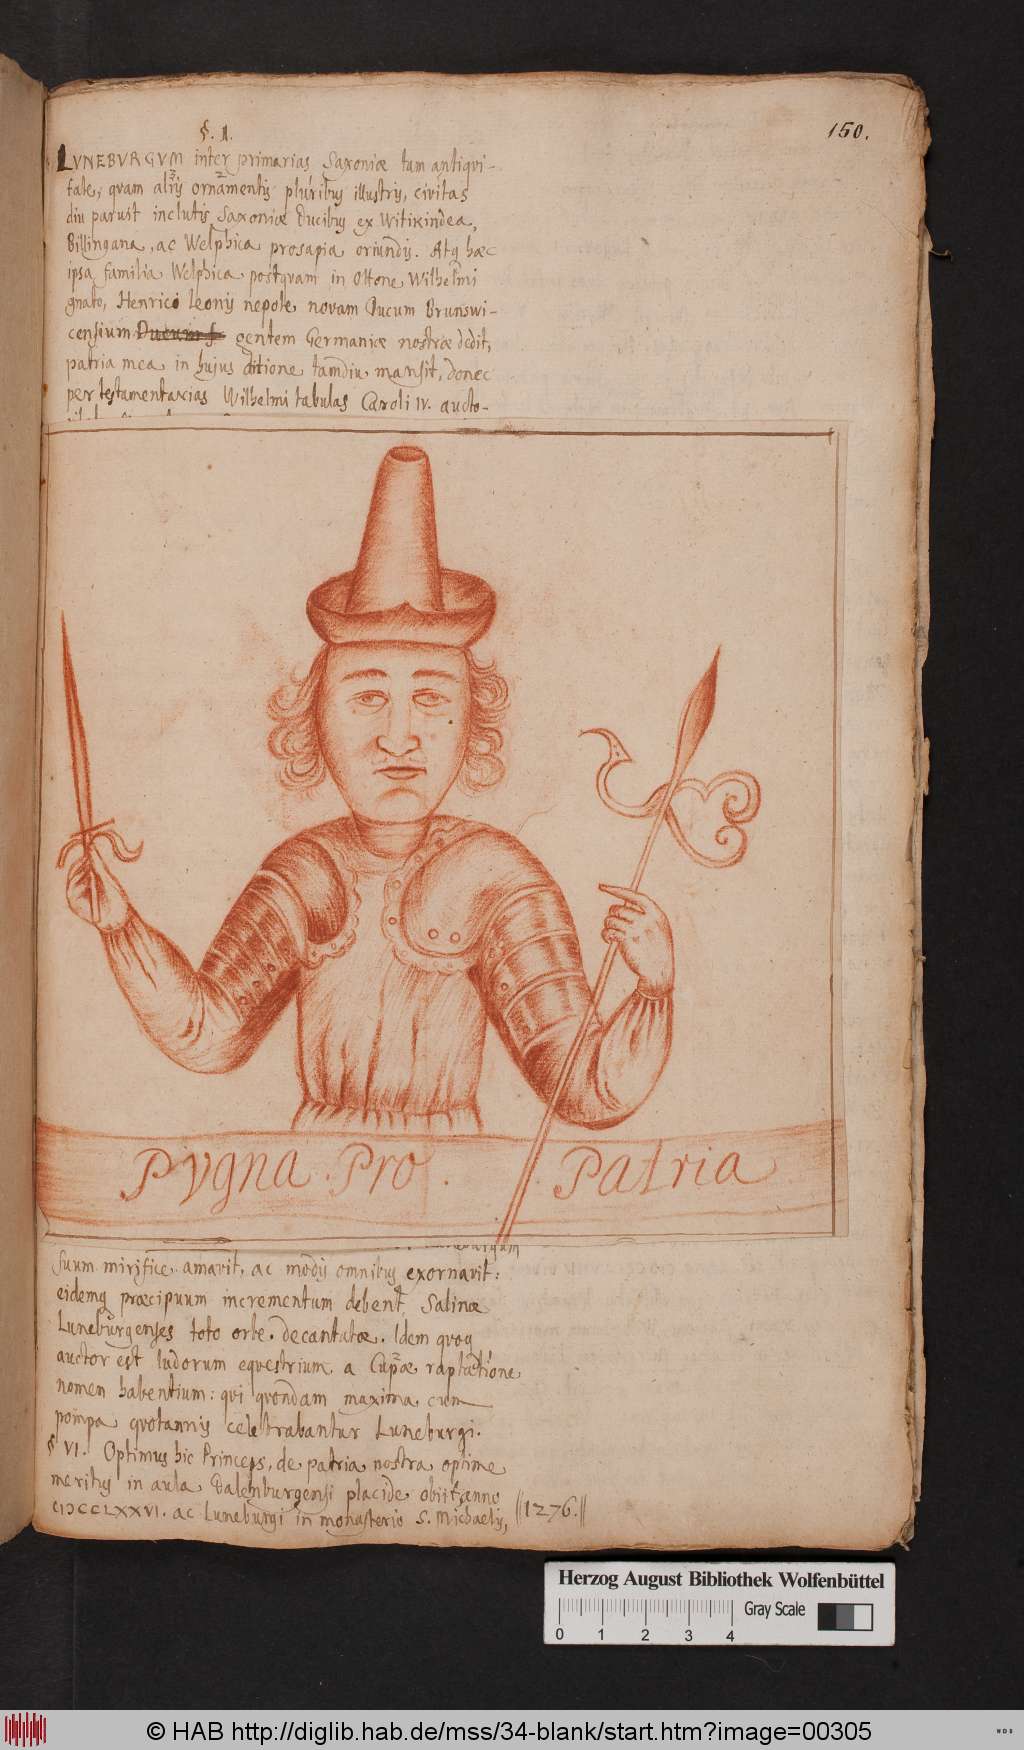 150.
§. 1.
LUNEBURGUM inter primarias Saxoniæ tam antiqui-
tate, quam alijs ornamentis pluribus illustris, civitas
diu paruit inclutis Saxoniæ Ducibus ex Witikindea,
Billingana, ac Welphica prosapia oriundis. Atq hæc
ipsa familia Welphica postquam in Ottone Wilhelmi
gnato, Henrici Leonis nepote novam Ducum Brunswi-
censium Ducum gentem Germaniæ nostræ dedit,
patria mea in hujus ditione tamdiu mansit, donec
per testamentarias Wilhelmi tabulas Caroli IV. aucto-
Pugna . Pro . Patria
suum mirifice amavit, ac modis omnibus exornavit:
eidemq præcipuum incrementum debent Salinæ
Luneburgenses toto orbe decantatæ. Idem quoq
auctor est ludorum equestrium a Cupæ raptatione
nomen habentium: qui quondam maxima cum
pompa quotannis celebrabantur Luneburgi.
§ VI. Optimus hic Princeps, de patria nostra optime
meritus in aula Dalenburgensi placide obiit anno
CIƆCCLXXVI. ac Luneburgi in monasterio S. Michaelis, ||1276.||
Herzog August Bibliothek Wolfenbüttel
Gray Scale
0 1 2 3 4
© HAB http://diglib.hab.de/mss/34-blank/start.htm?image=00305
WDB